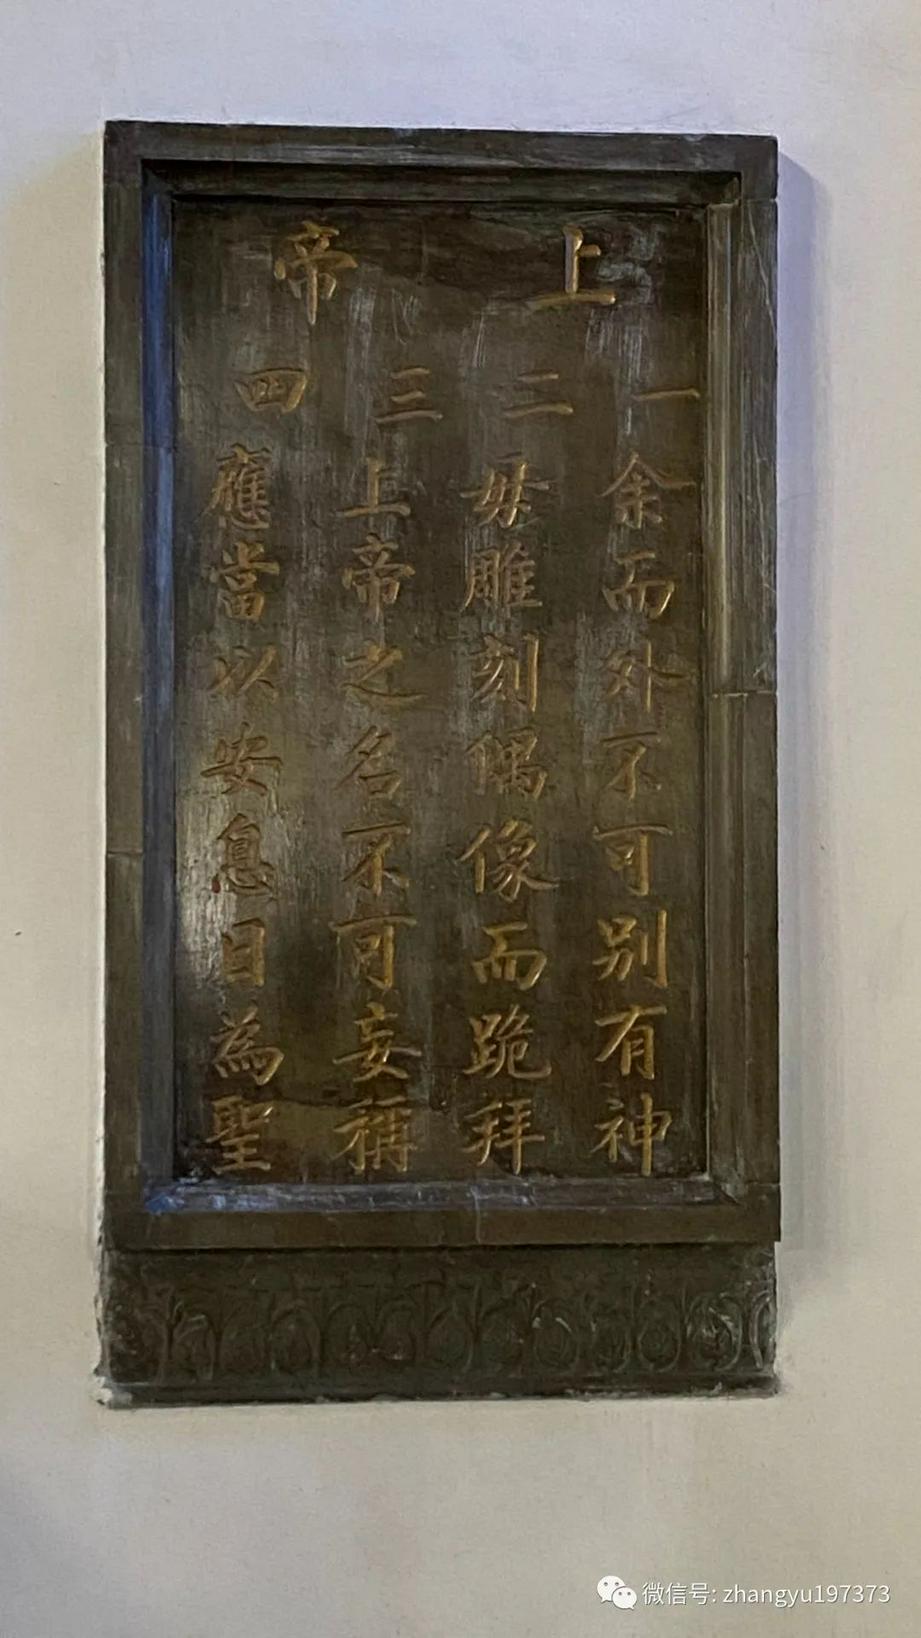 上帝
一 余而外不可別有神
二 毋雕刻偶像而跪拜
三 上帝之名不可妄稱
四 應當以安息日為聖
微信号: zhangyu197373